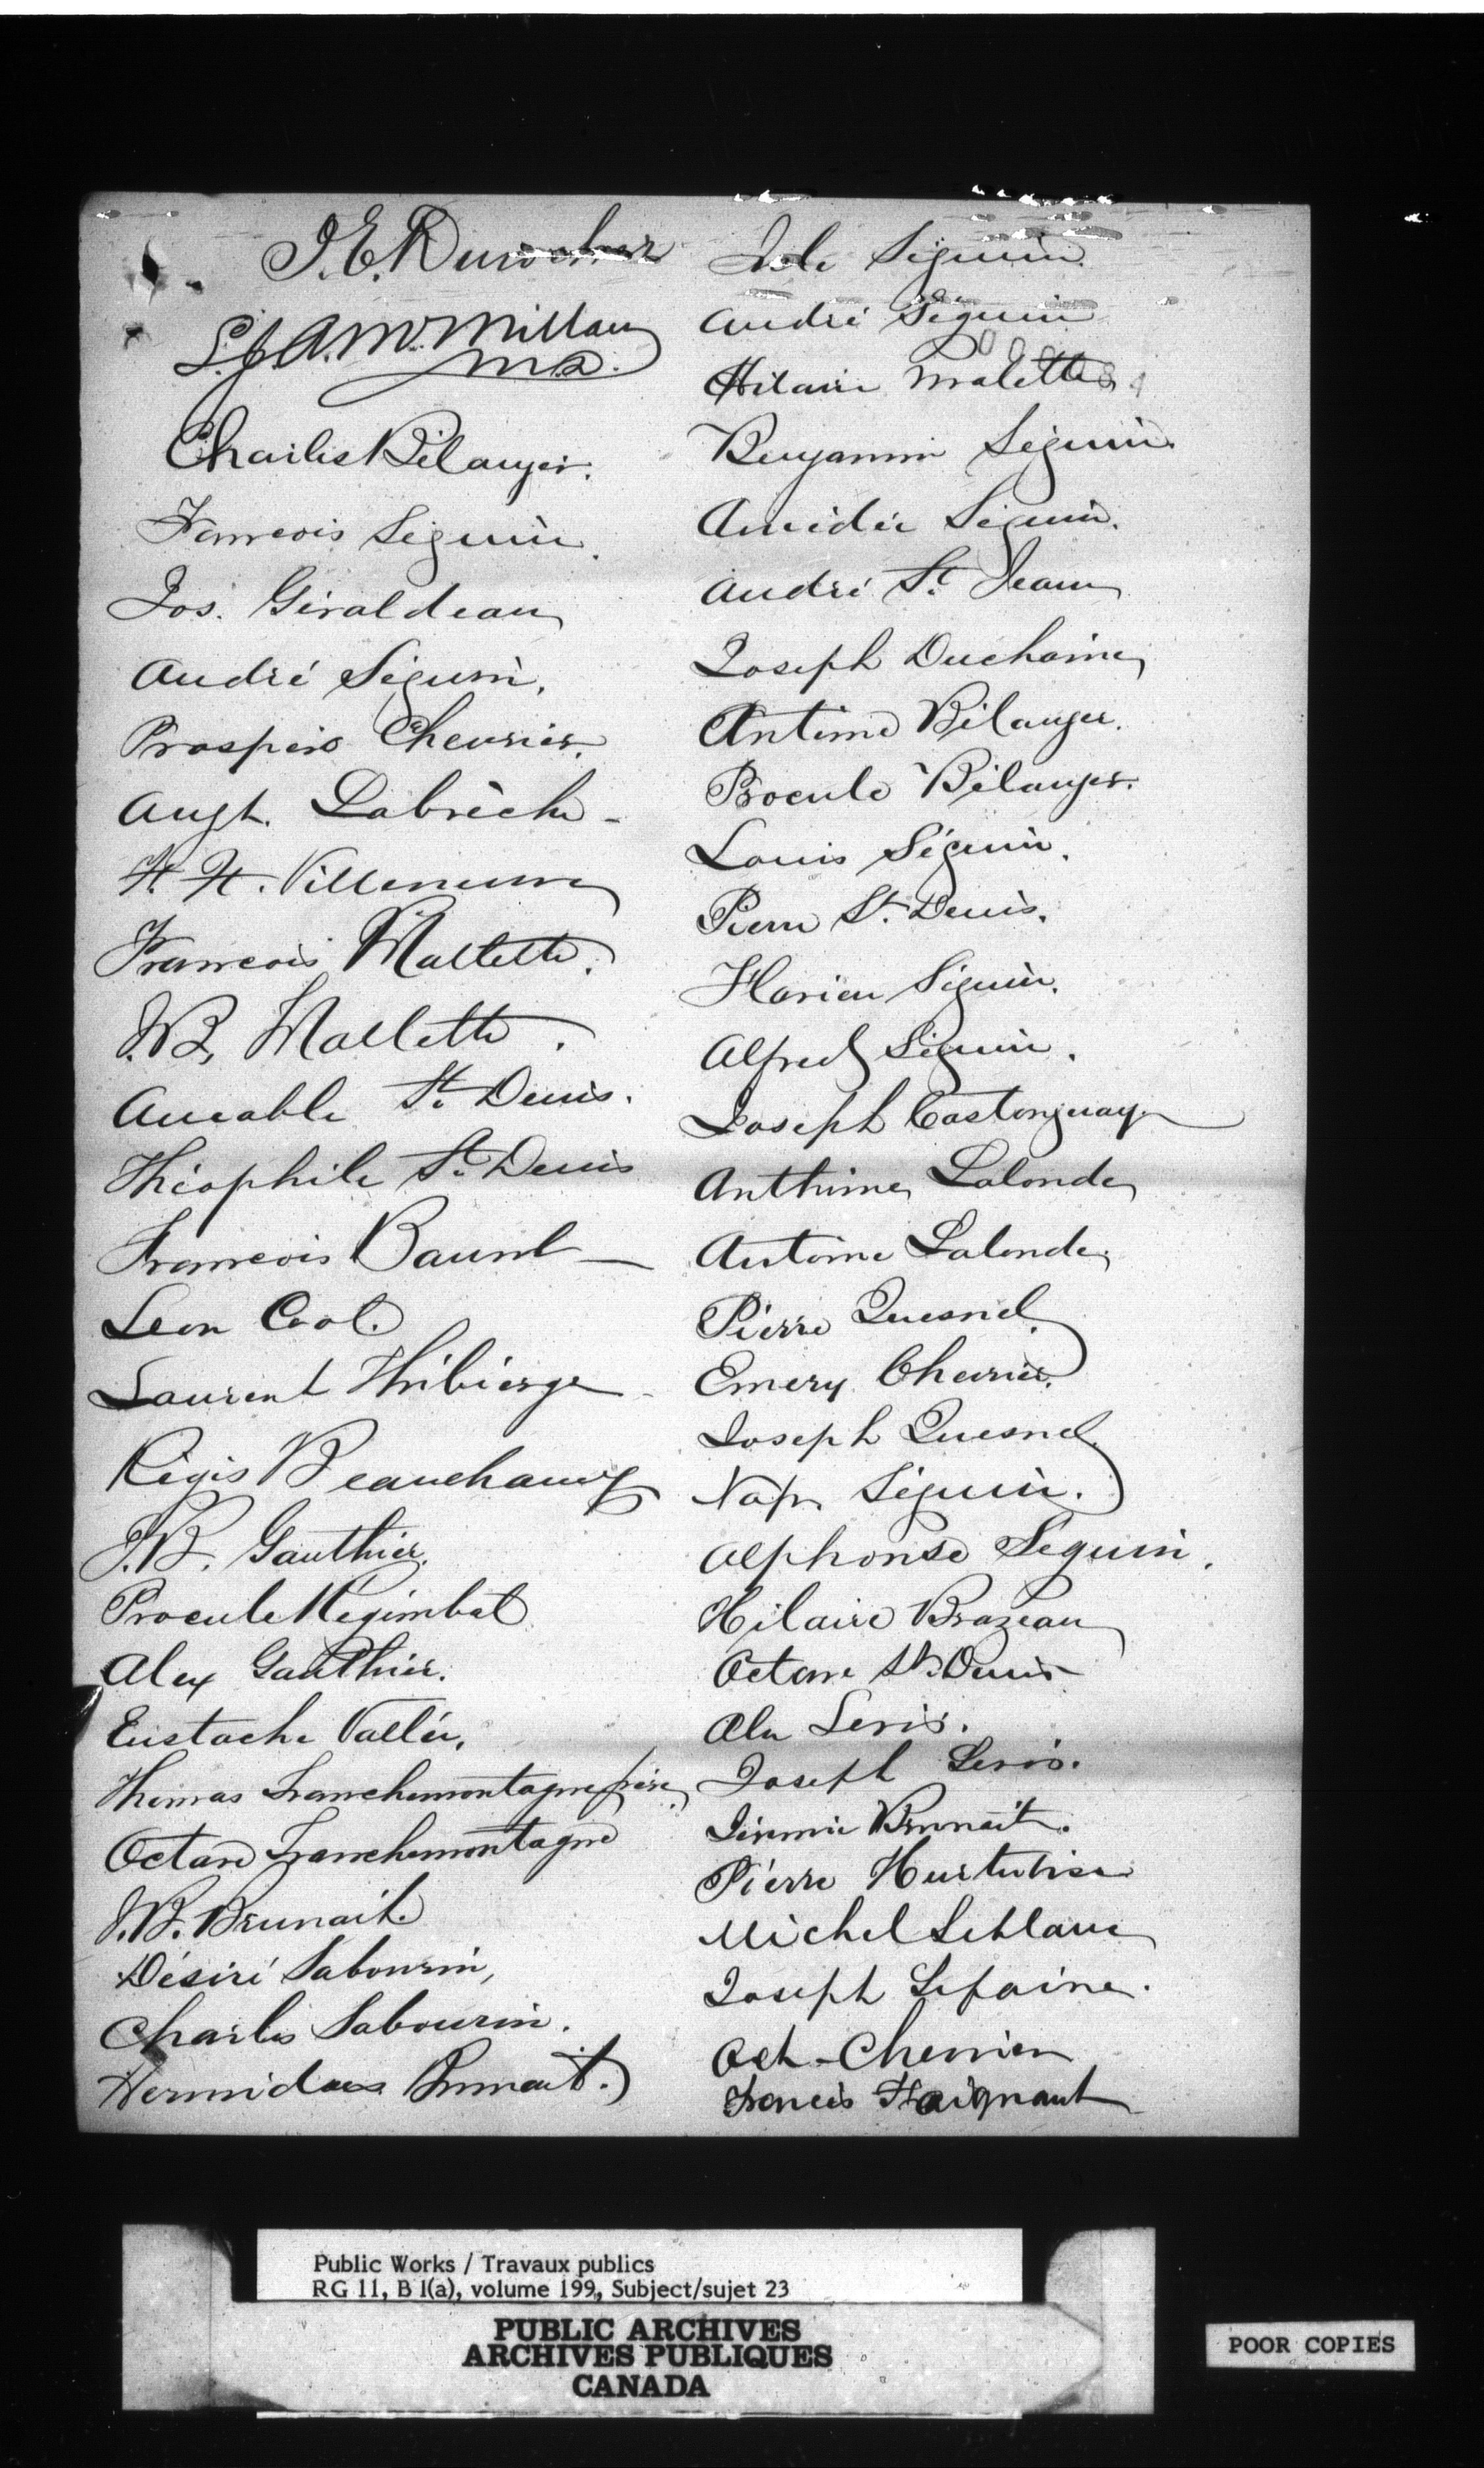 J. E. Durocher
A. McMillan
M.D.
Charles Bélanger.
Francois Seguin.
Jos. Giraldeau
André Seguin.
Prospère Chevrier.
Augt. Labrèche -
Villeneuve
Francois Mallette.
J.B. Mallette.
Aimable St. Denis.
Théophile St. Denis
Francois
Leon Cool.
Laurent Thibierge -
Régis Beauchamp
J.B. Gauthier.
Procule Regimbal
Alex Gauthier.
Eustache Vallée.
Thomas Franchemontagne père
Octave Franchemontagne
J.B. Brunait.
Désiré Sabourin,
Charles Sabourin.
Hermidas Brunait.
Seguin.
André Seguin
Hilaire Malette
Benjamin Seguin.
Amédée Seguin.
André St. Jean
Joseph Duchaine
Antime Bélanger.
Procule Bélanger.
Louis Séguin.
Pierre St. Denis.
Florien Séguin.
Alfred Séguin.
Joseph Castonguay
Anthime Lalonde
Antoine Lalonde
Pierre Quesnel.
Emery Chevrier.
Joseph Quesnel.
Nap. Séguin.
Alphonse Seguin.
Hilaire Brazeau
Octave St. Denis
Leris.
Joseph Leris.
Jimmie Brunait.
Pierre Hurtubise
Michel Leblanc
Joseph Lefaive.
Oct. Chevrier
Francis Faignant
Public Works / Travaux publics
RG 11, B 1(a), volume 199, Subject/sujet 23
PUBLIC ARCHIVES
ARCHIVES PUBLIQUES
CANADA
POOR COPIES